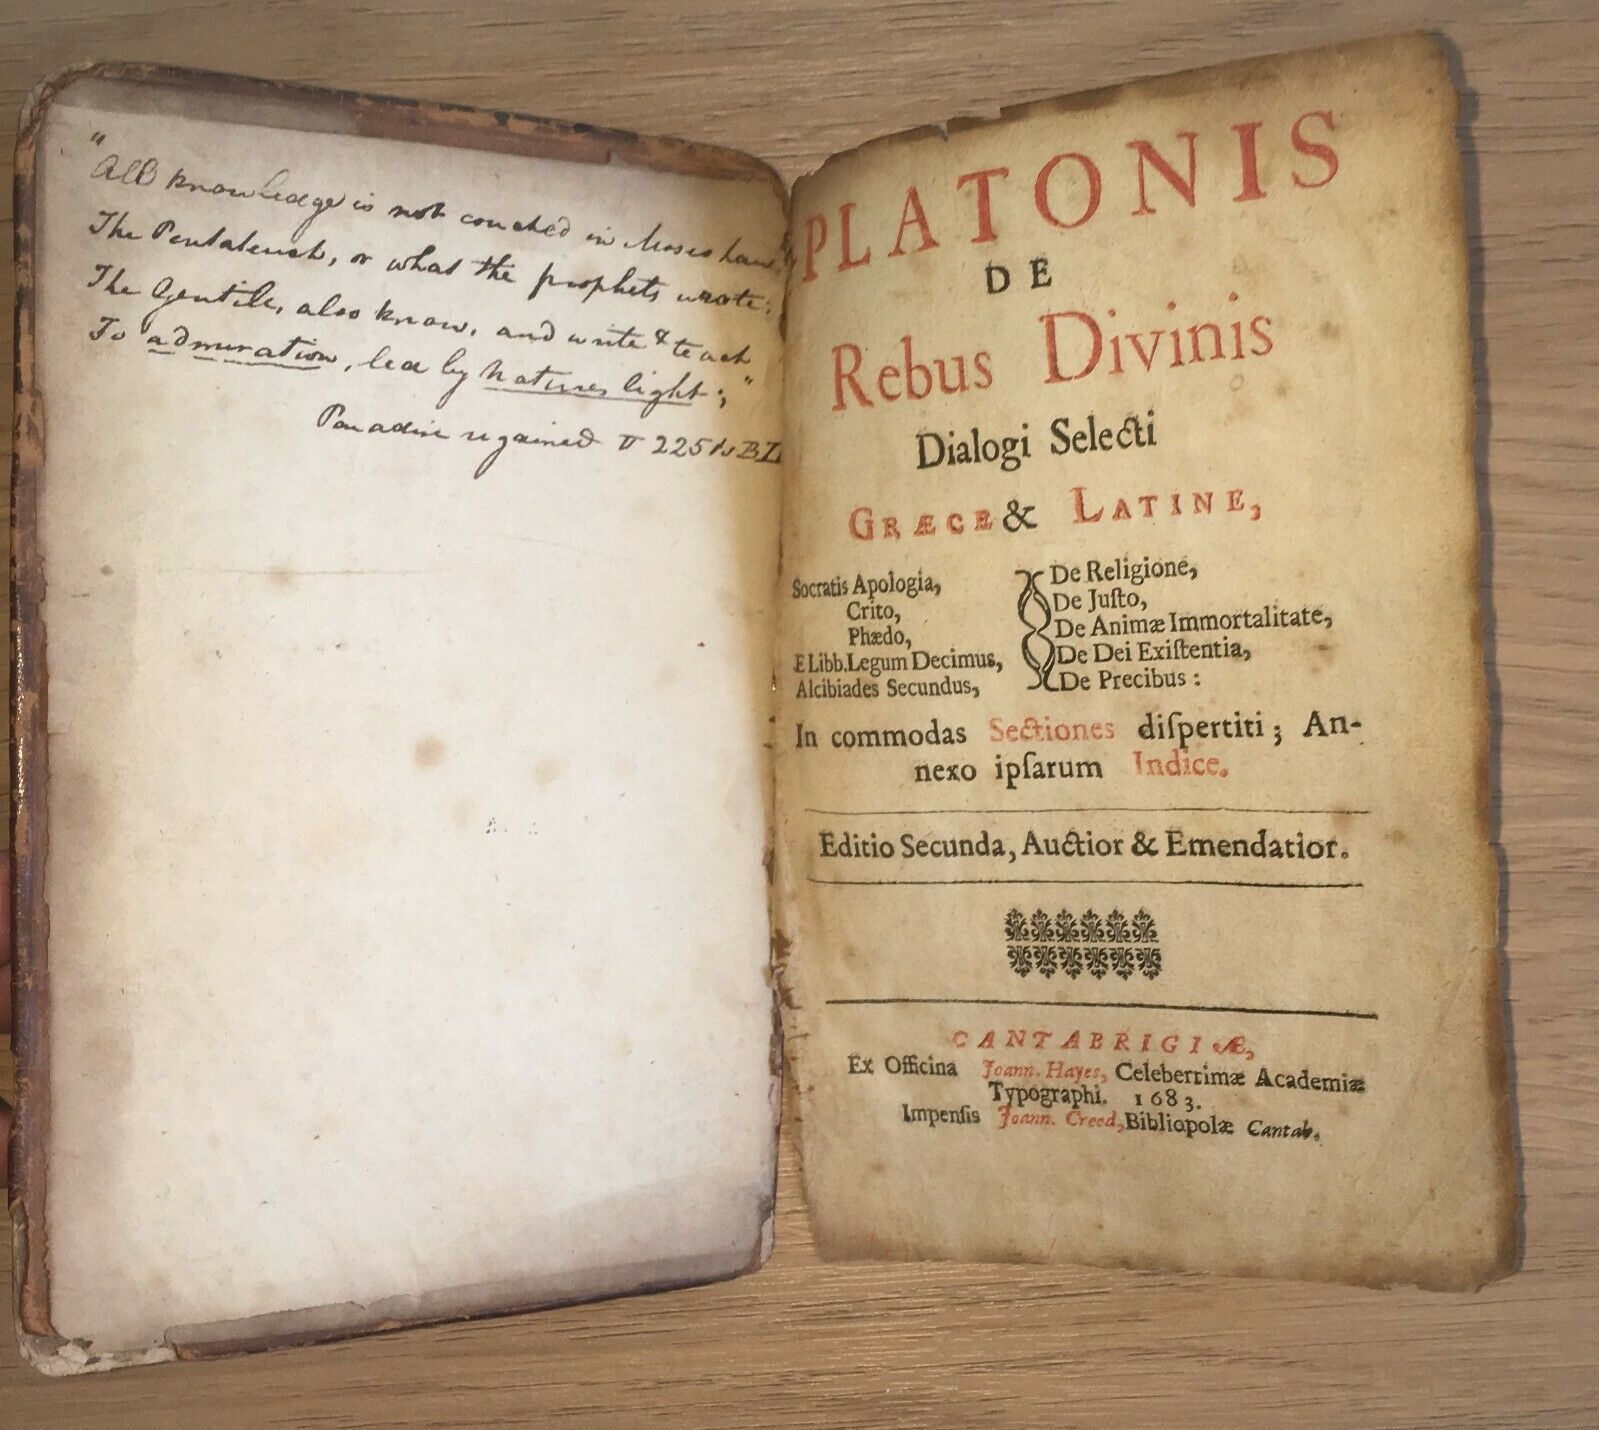 "All knowledge is not couched in Moses law,
The Pentateuch, or what the prophets wrote;
The Gentiles also know, and write & teach
To admiration, led by Natures light;"
Paradise regained 225
PLATONIS
DE
Rebus Divinis
Dialogi Selecti
GRÆCE & LATINE,
Socratis Apologia, De Religione,
Crito, De Juſto,
Phædo, De Animæ Immortalitate,
E Libb. Legum Decimus, De Dei Exiſtentia,
Alcibiades Secundus, De Precibus:
In commodas Sectiones diſpertiti; An-
nexo ipſarum Indice.
Editio Secunda, Auctior & Emendatior.
CANTABRIGIÆ,
Ex Officina Joann. Hayes, Celeberrimæ Academiæ
Typographi. 1683.
Impenſis Joann. Creed, Bibliopolæ Cantab.